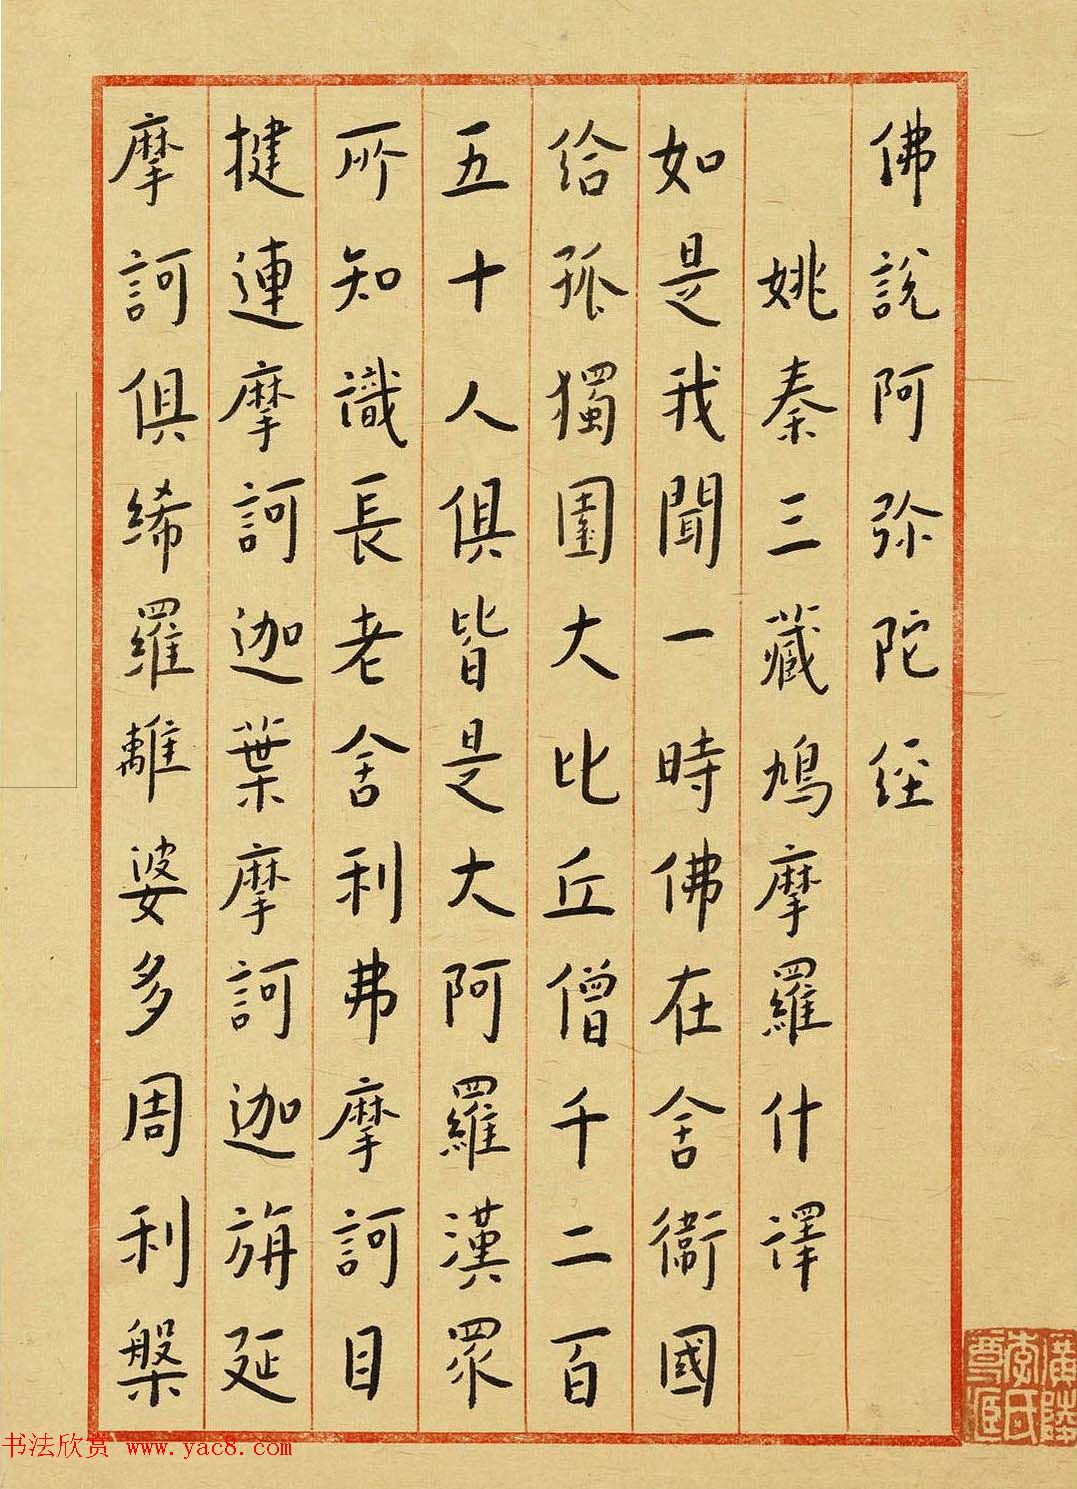 佛說阿弥陀經
姚秦三藏鳩摩羅什譯
如是我聞一時佛在舍衞國
給孤獨園大比丘僧千二百
五十人俱皆是大阿羅漢眾
所知識長老舍利弗摩訶目
揵連摩訶迦葉摩訶迦旃延
摩訶俱絺羅離婆多周利槃
书法欣赏 www.yac8.com